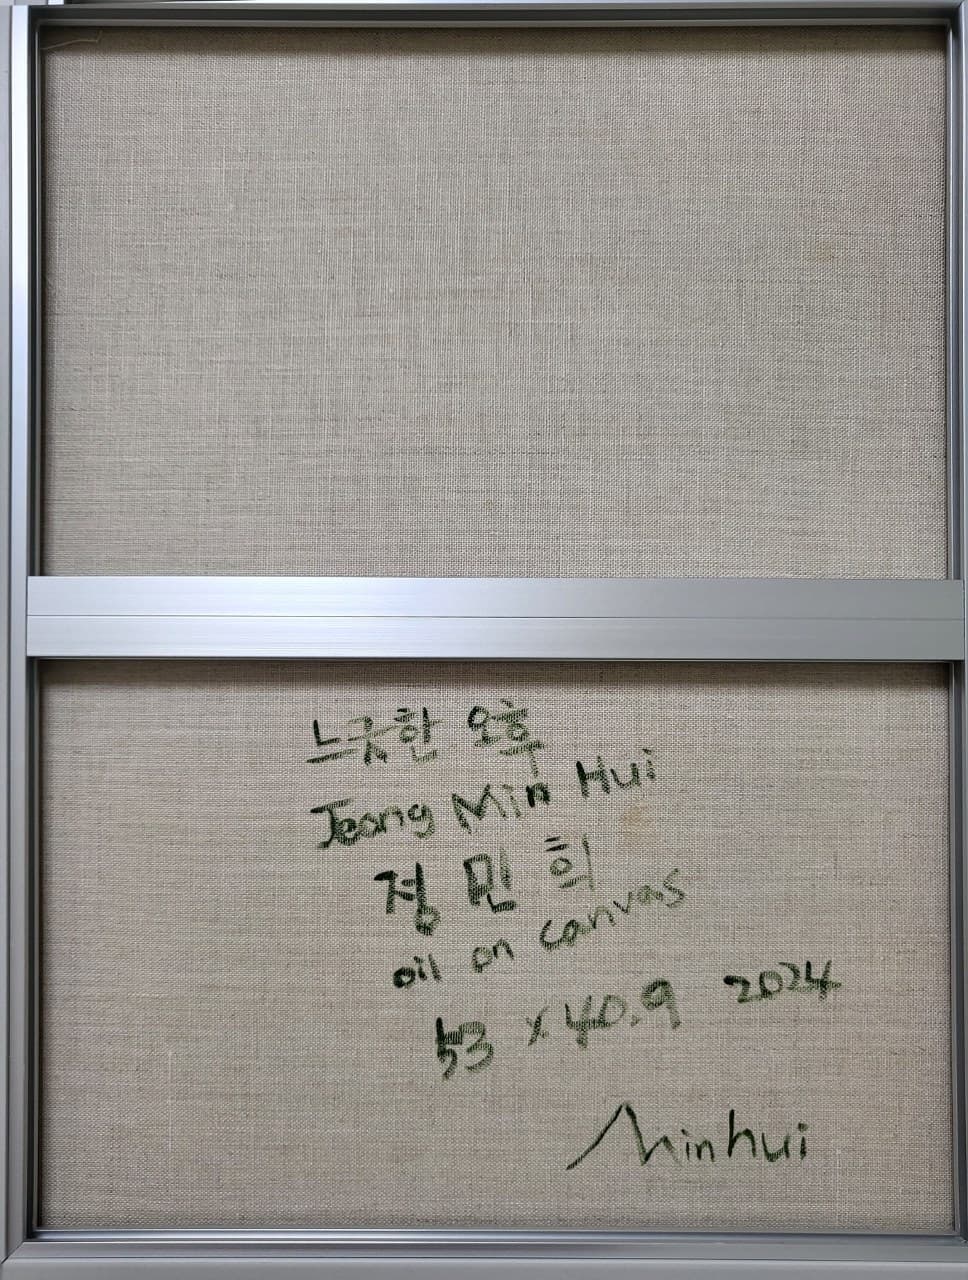 느긋한 오후
Jeong Min Hui
정민희
oil on canvas
53 x 40.9 2024
Minhui